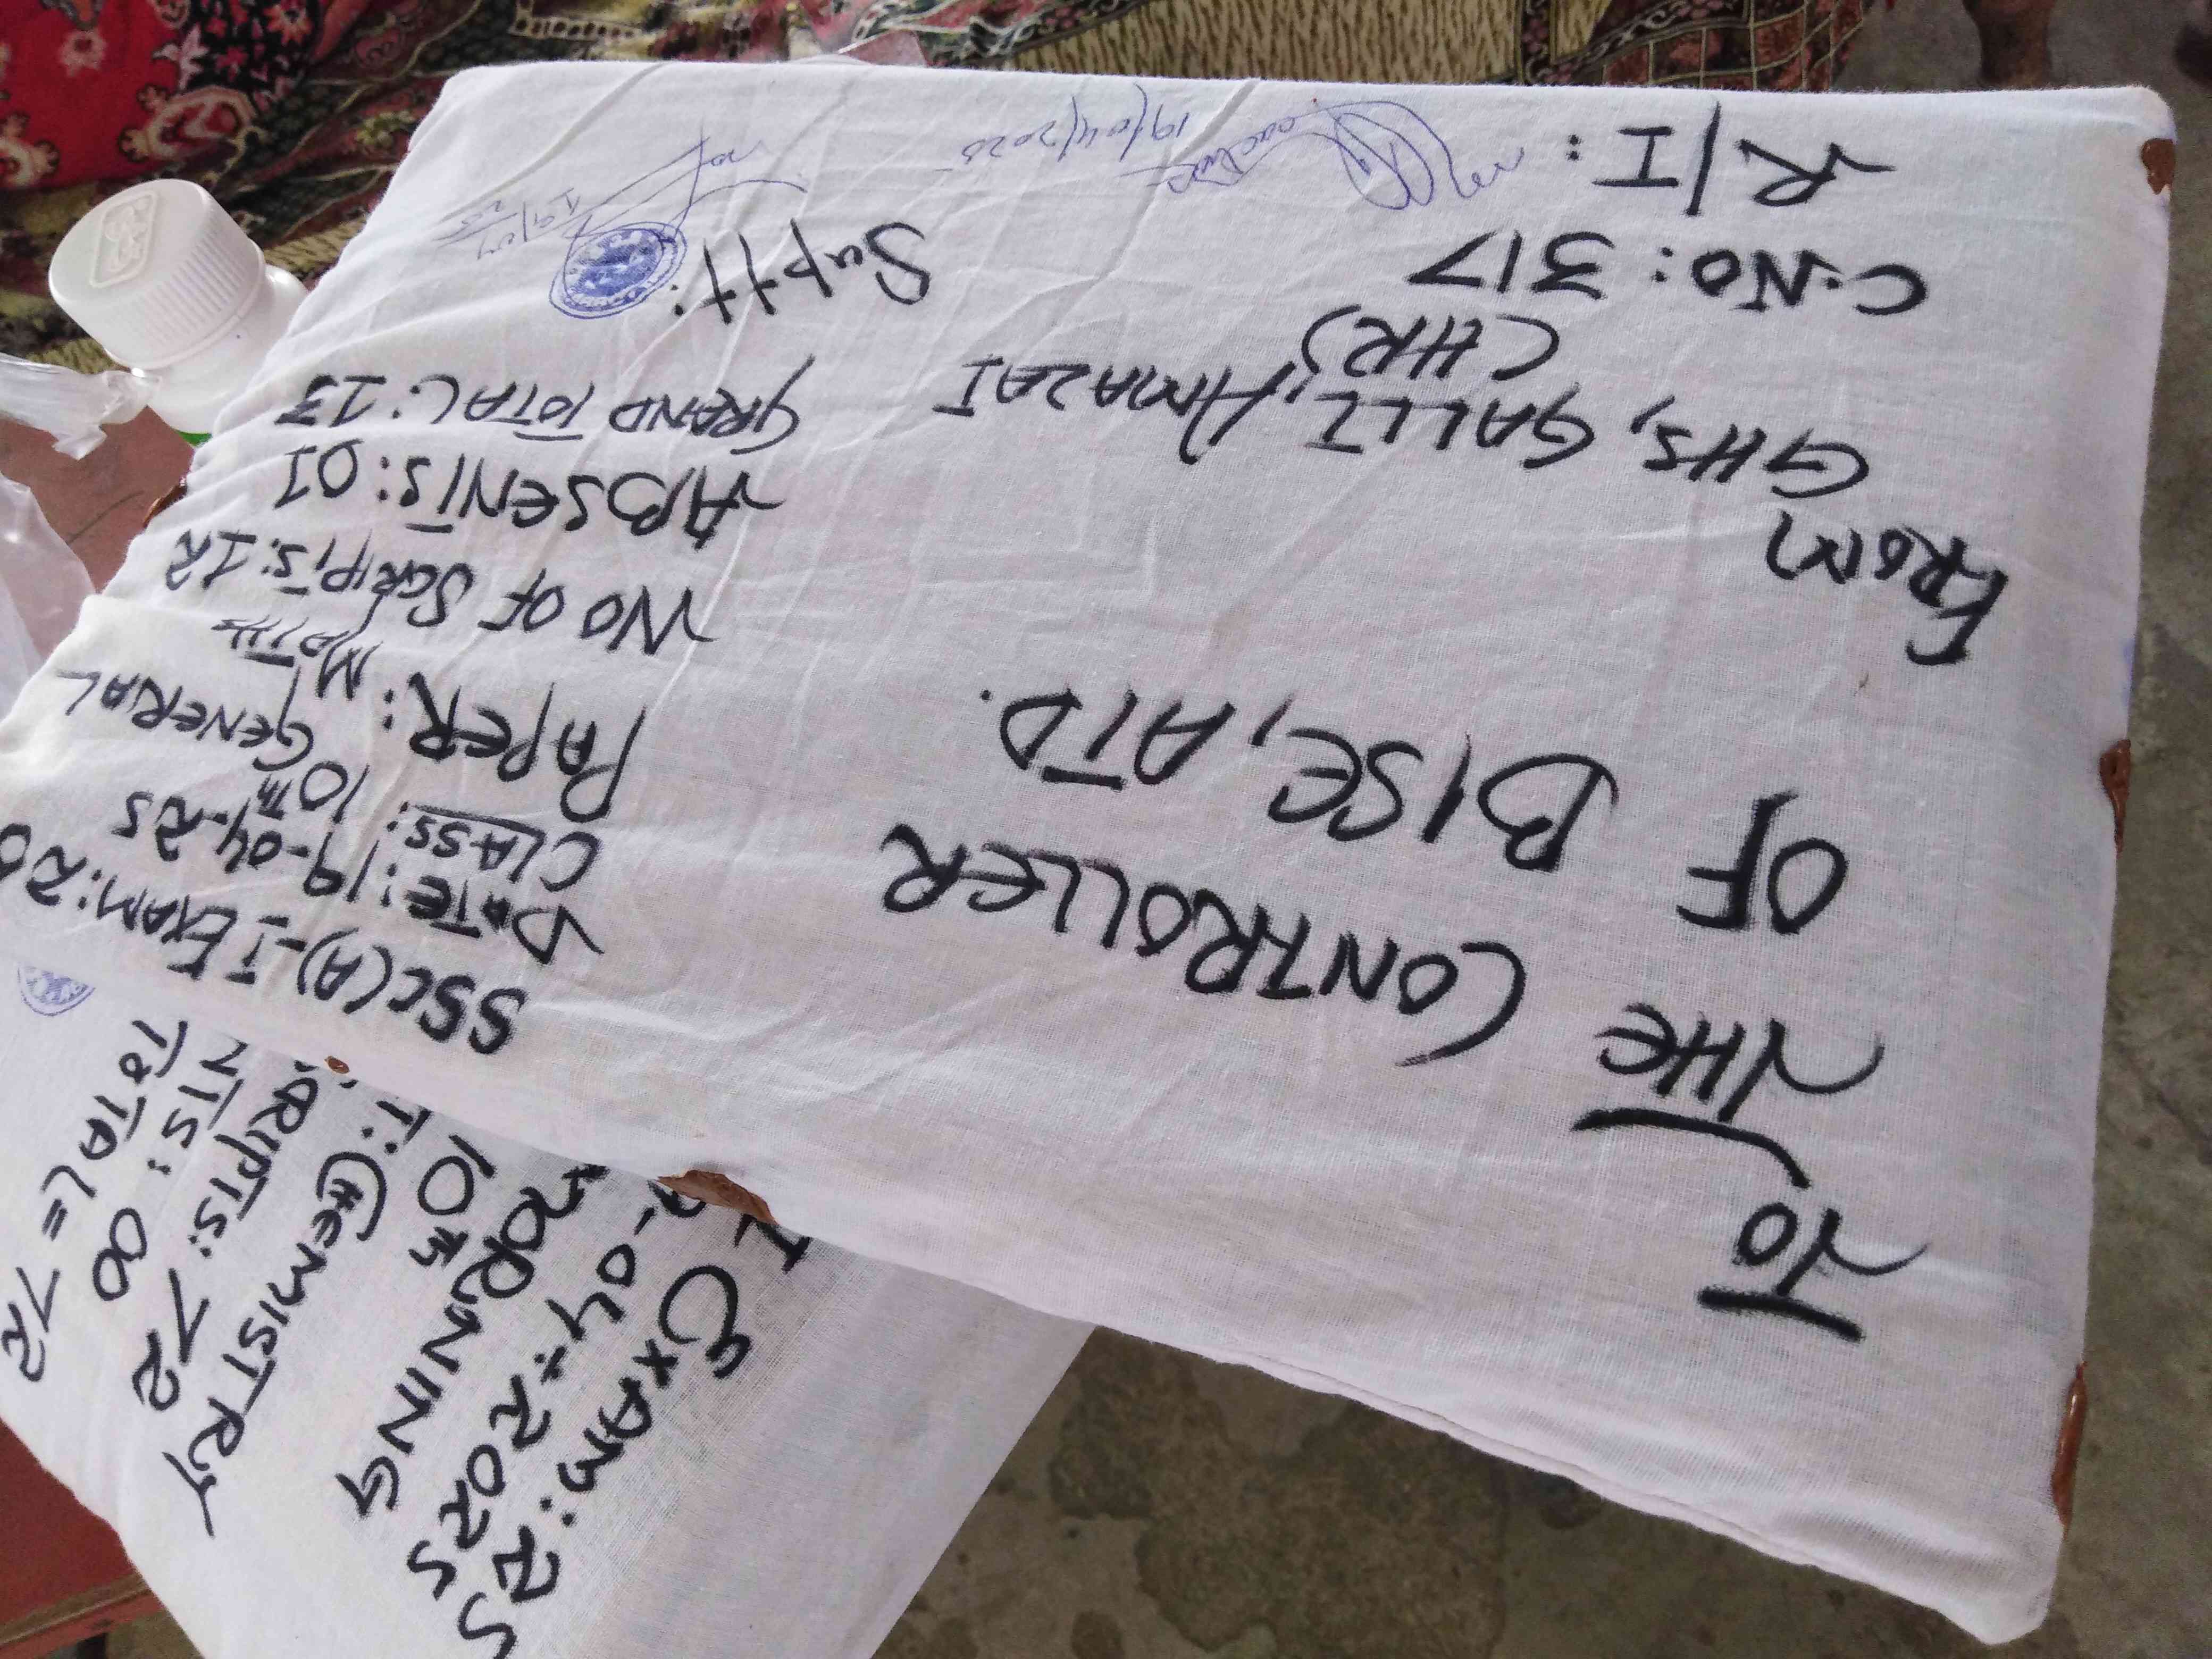 TO
THE CONTROLLER
OF BISE, ATD.
FROM
GHS, GALLI, AMAZAI
(HR)
C.NO: 317
R/I:
19/04/2025
SSC(A)-I EXAM: 20
DATE: 19-04-25
CLASS: 10TH
PAPER: GENERIAL
MATH
NO OF SCRIPTS: 12
ABSENTS: 01
GRAND TOTAL: 13
Suptt:
19/04
25
I EXAM: 25
-04-2025
MORNING
10TH
T: CHEMISTRY
CRIPTS: 72
NTS: 00
TOTAL= 72